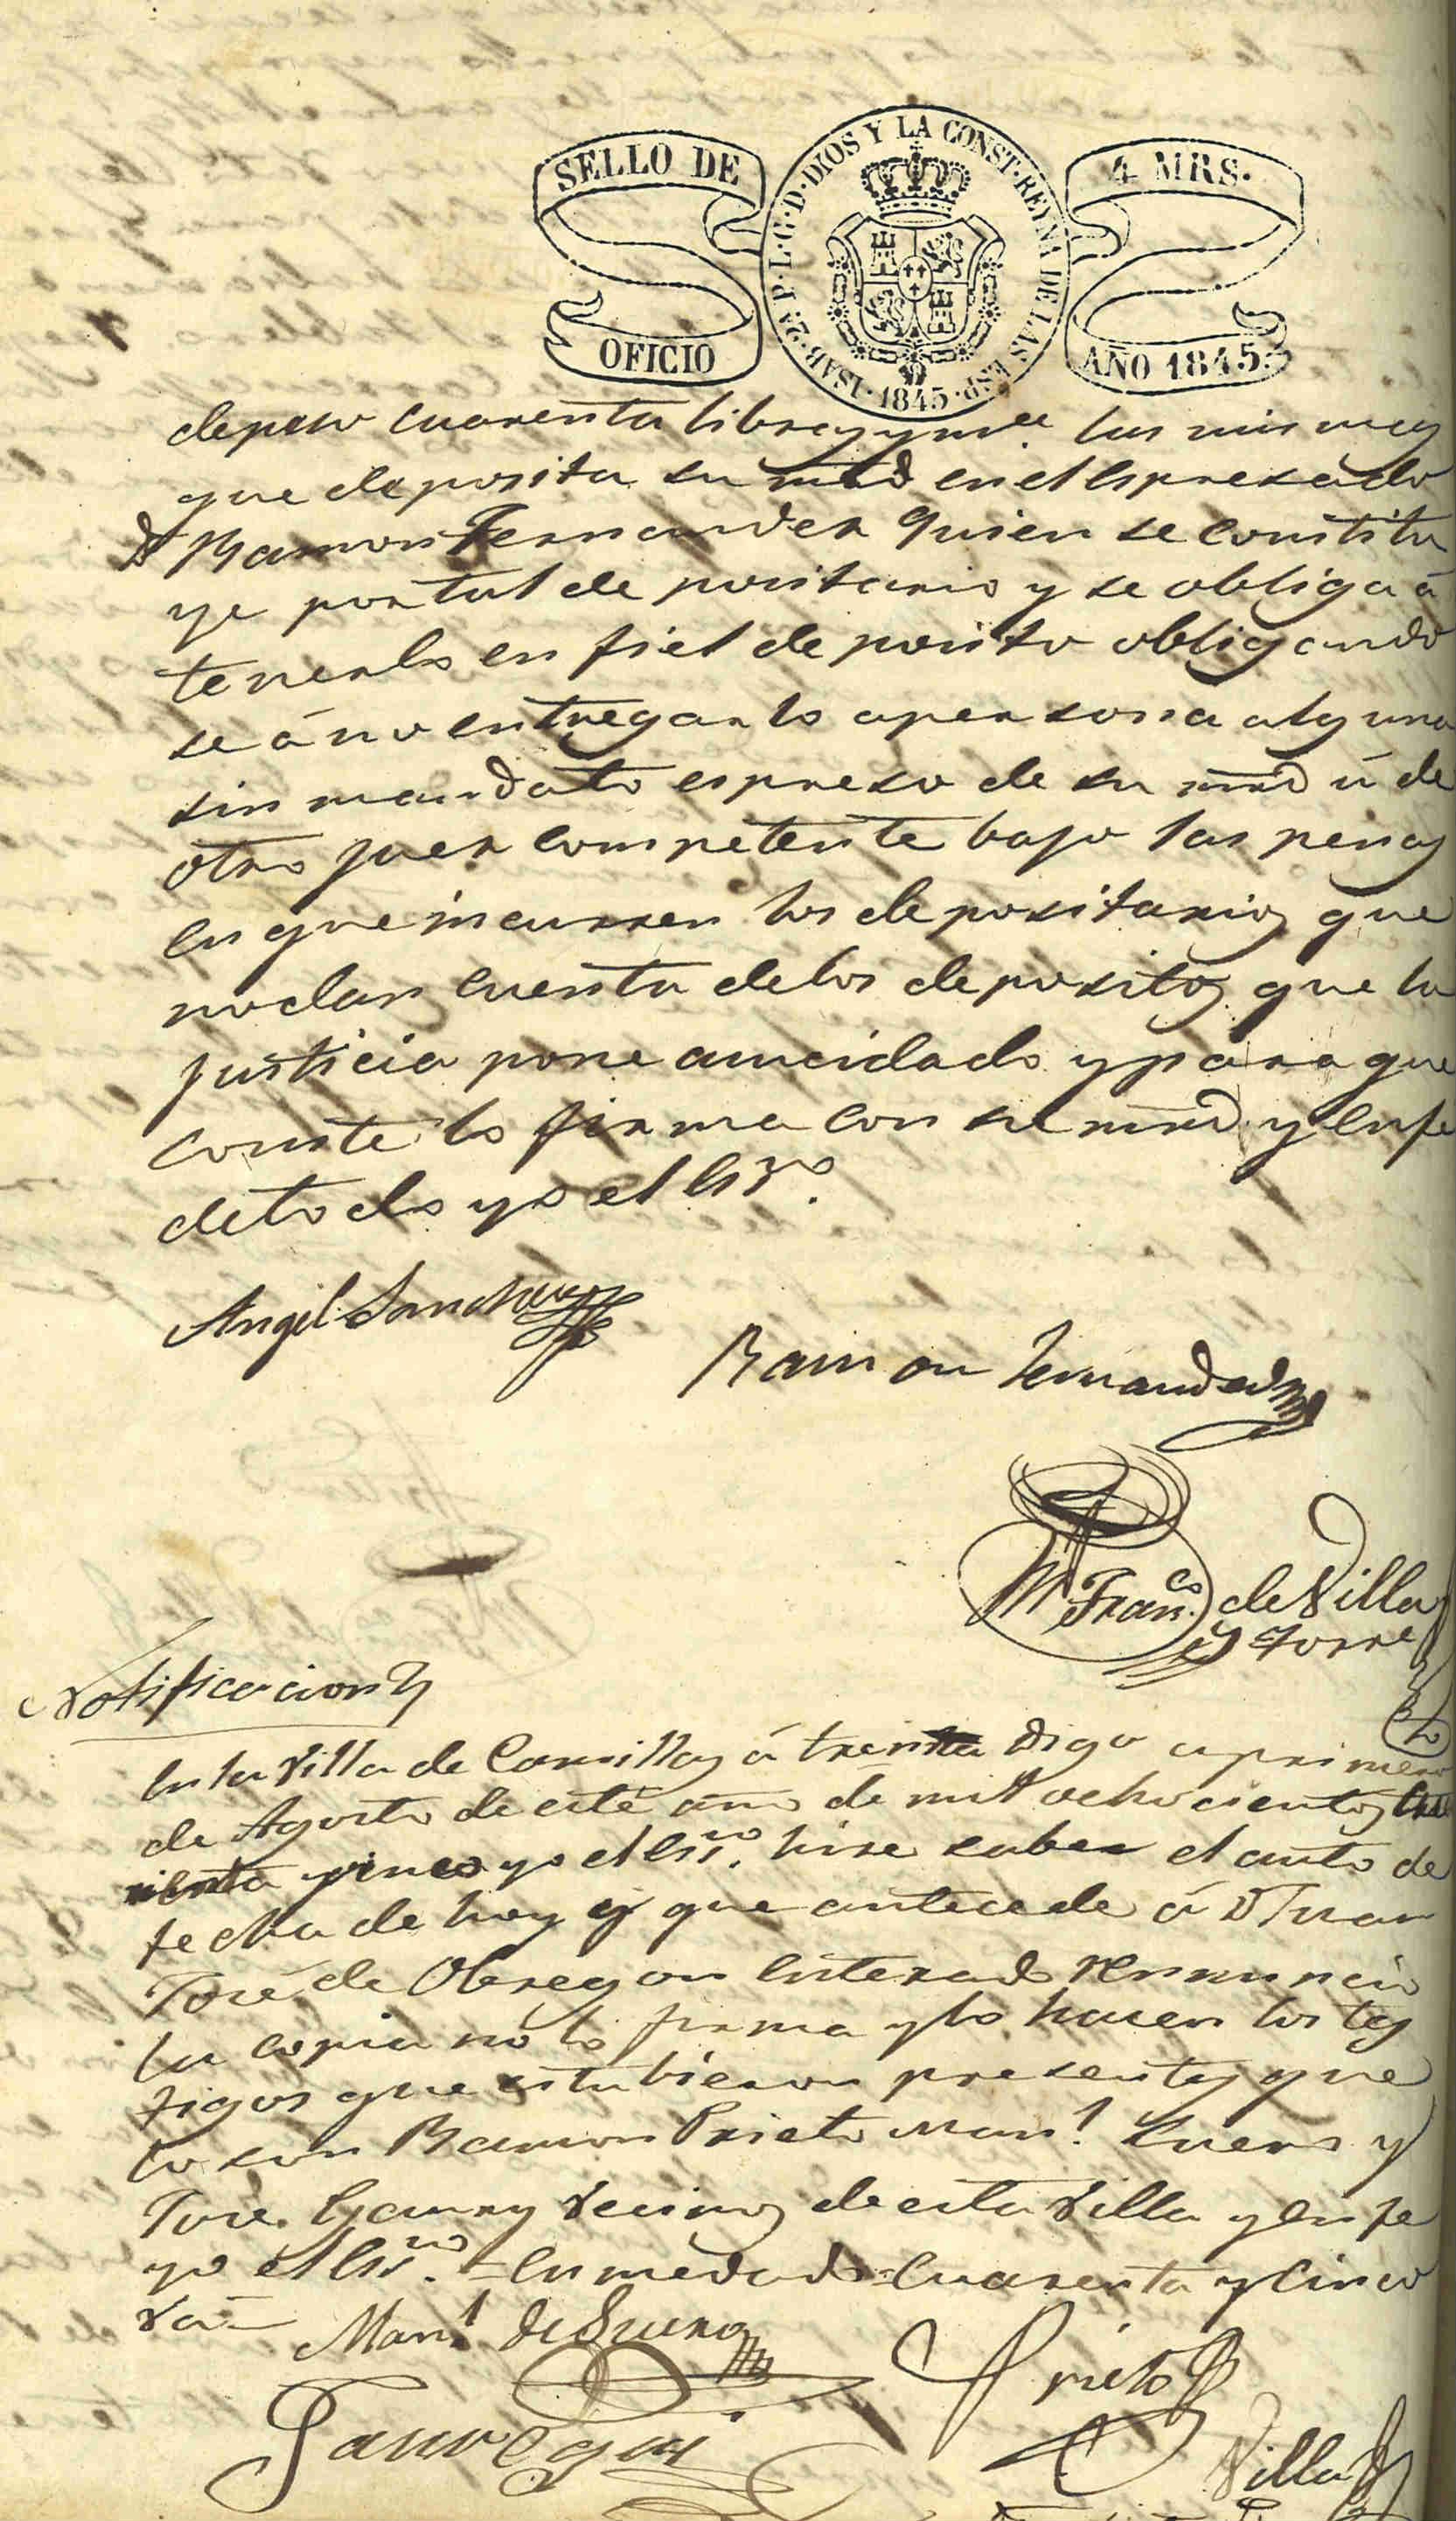 SELLO DE OFICIO
ISAB. 2A. P. L. G. D. DIOS Y LA CONST. REYNA DE LAS ESP. 1845.
4 MRS. AÑO 1845.
depeso cuarenta libras y mea. las mismas
que deposita su mrd en el espresado
Dn Ramon Fernandez quien se constitu
ye por tal depositario y se obliga á
tenerlo en fiel deposito obligando
se á no entregarlo apersona alguna
sin mandato espreso de su mrd ú de
otro juez competente bajo las penas
en que incurren los depositarios que
no dan cuenta delos depositos que la
justicia pone asucuidado y para que
conste lo firma con su mrd y en fe
de todo yo el Esno.
Angel Sanchez
Ramon Fernandez
Franco de Villa
y Torre
Notificacion
En la Villa de Comillas á treinta digo aprimero
de Agosto de este año de mil ochocientos
yo el Esno. hise saber el auto de
fecha de hoy y que antecede á Dn Juan
José de Obregon enterado renuncio
la copia no lo firma y lo hacen los tes
tigos que estubieron presentes que
lo son Ramon Prieto Manl. Suero y
José vecinos de esta Villa y en fe
yo el Esno. = Enmendado = Cuarenta y Cinco
Va =
Manl. de Suero
Prieto
Villa